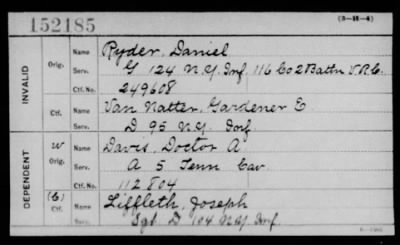 152185
(3-18-4)
INVALID
Orig.
Name
Ryder, Daniel
Serv.
G 124 N.Y. Inf. 116 Co 2 Battn V.R.C.
Ctf. No.
249608
Ctf.
Name
Van Natter, Gardener E
Serv.
D 95 N.Y. Inf.
DEPENDENT
W
Orig.
Name
Davis, Doctor A
Serv.
A 5 Tenn Cav.
Ctf. No.
112804
Ctf.
Name
Liffleth, Joseph
Serv.
Sgt. D 104 N.Y. Inf.